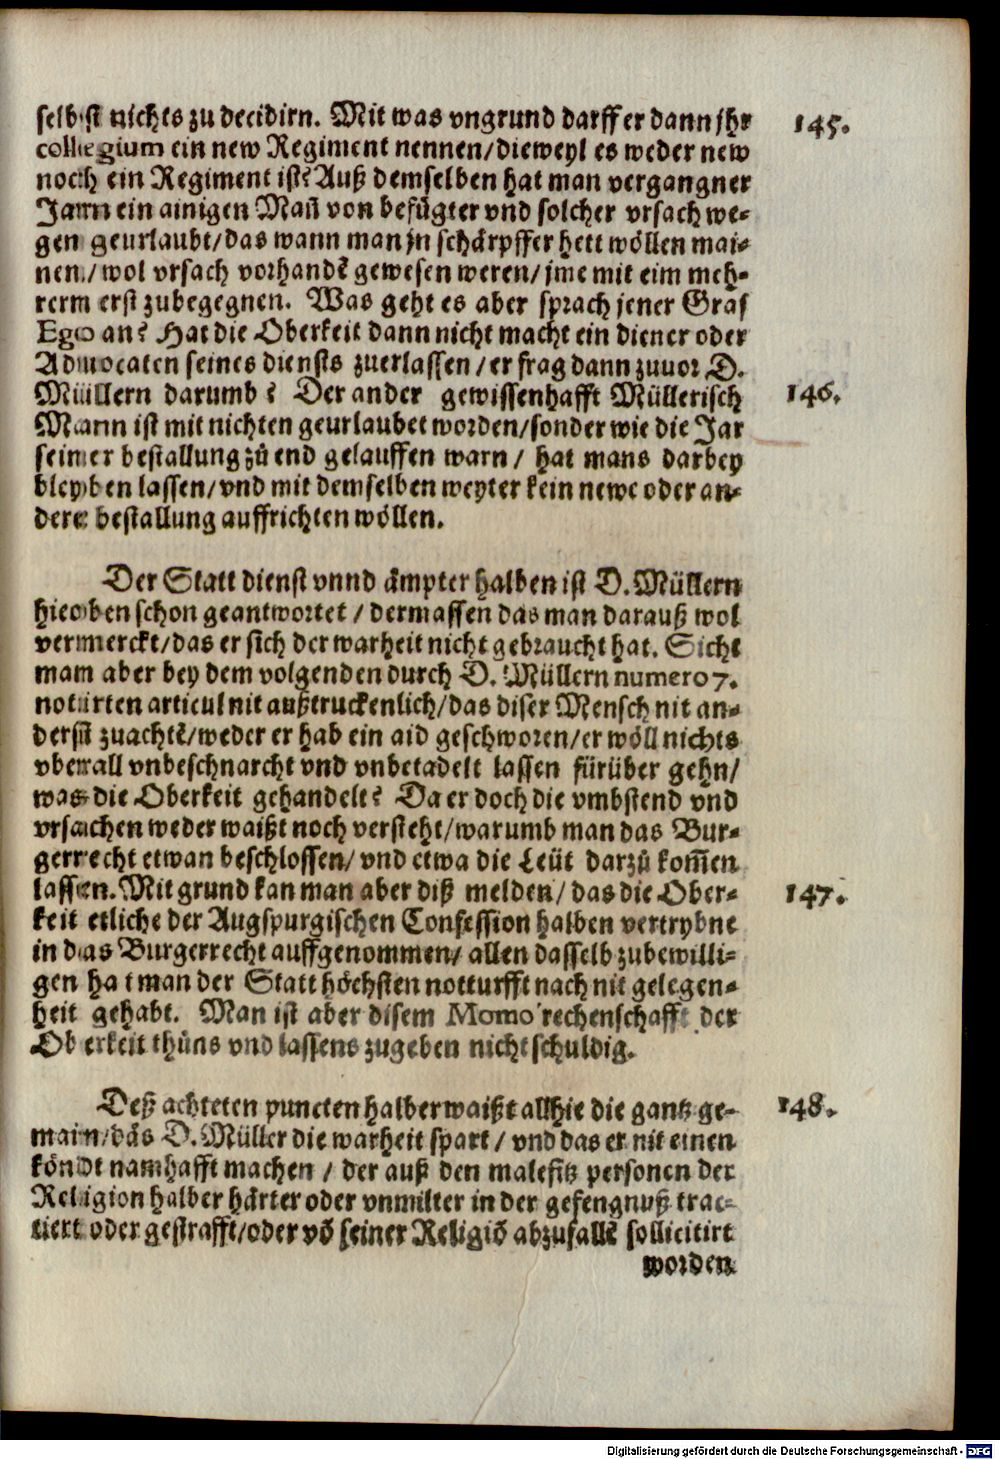 selbst nichts zu decidirn. Mit was vngrund darff er dann jhr 145.
collegium ein new Regiment nennen/dieweyl es weder new
noch ein Regiment ist? Auß demselben hat man vergangner
Jarn ein ainigen Mañ von befügter vnd solcher vrsach we-
gen geurlaubt/das wann man jn schärpffer hett wöllen mai-
nen/wol vrsach vorhandẽ gewesen weren/jme mit eim meh-
rerm erst zubegegnen. Was geht es aber sprach jener Graf
Ego an? Hat die Oberkeit dann nicht macht ein diener oder
Advocaten seines diensts zuerlassen/er frag dann zuuor D.
Müllern darumb? Der ander gewissenhafft Müllerisch 146.
Mann ist mit nichten geurlaubet worden/sonder wie die Jar
seiner bestallung zů end gelauffen warn/ hat mans darbey
bleyben lassen/vnd mit demselben weyter kein newe oder an-
dere bestallung auffrichten wöllen.
Der Statt dienst vnnd ämpter halben ist D. Müllern
hieoben schon geantwortet/dermassen das man darauß wol
vermerckt/das er sich der warheit nicht gebraucht hat. Sicht
man aber bey dem volgenden durch D. Müllern numero 7.
notirten articul nit außtruckenlich/das diser Mensch nit an-
derst zuachtẽ/weder er hab ein aid geschworen/er wöll nichts
vberall vnbeschnarcht vnd vnbetadelt lassen fürüber gehn/
was die Oberkeit gehandelt? Da er doch die vmbstend vnd
vrsachen weder waißt noch versteht/warumb man das Bur-
gerrecht etwan beschlossen/ vnd etwa die Leüt darzů kom̃en
lassen. Mit grund kan man aber diß melden/ das die Ober- 147.
keit etliche der Augspurgischen Confession halben vertrybne
in das Burgerrecht auffgenommen/ allen dasselb zubewilli-
gen hat man der Statt höchsten notturfft nach nit gelegen-
heit gehabt. Man ist aber disem Momo rechenschafft der
Oberkeit thůns vnd lassens zugeben nicht schuldig.
Deß achteten puncten halber waißt allhie die gantz ge- 148.
main/das D. Müller die warheit spart/ vnd das er nit einen
köndt namhafft machen/ der auß den malefitz personen der
Religion halber härter oder vnmilter in der gefengnuß trac-
tiert oder gestrafft/oder võ seiner Religiõ abzufallẽ sollicitirt
worden
Digitalisierung gefördert durch die Deutsche Forschungsgemeinschaft - DFG